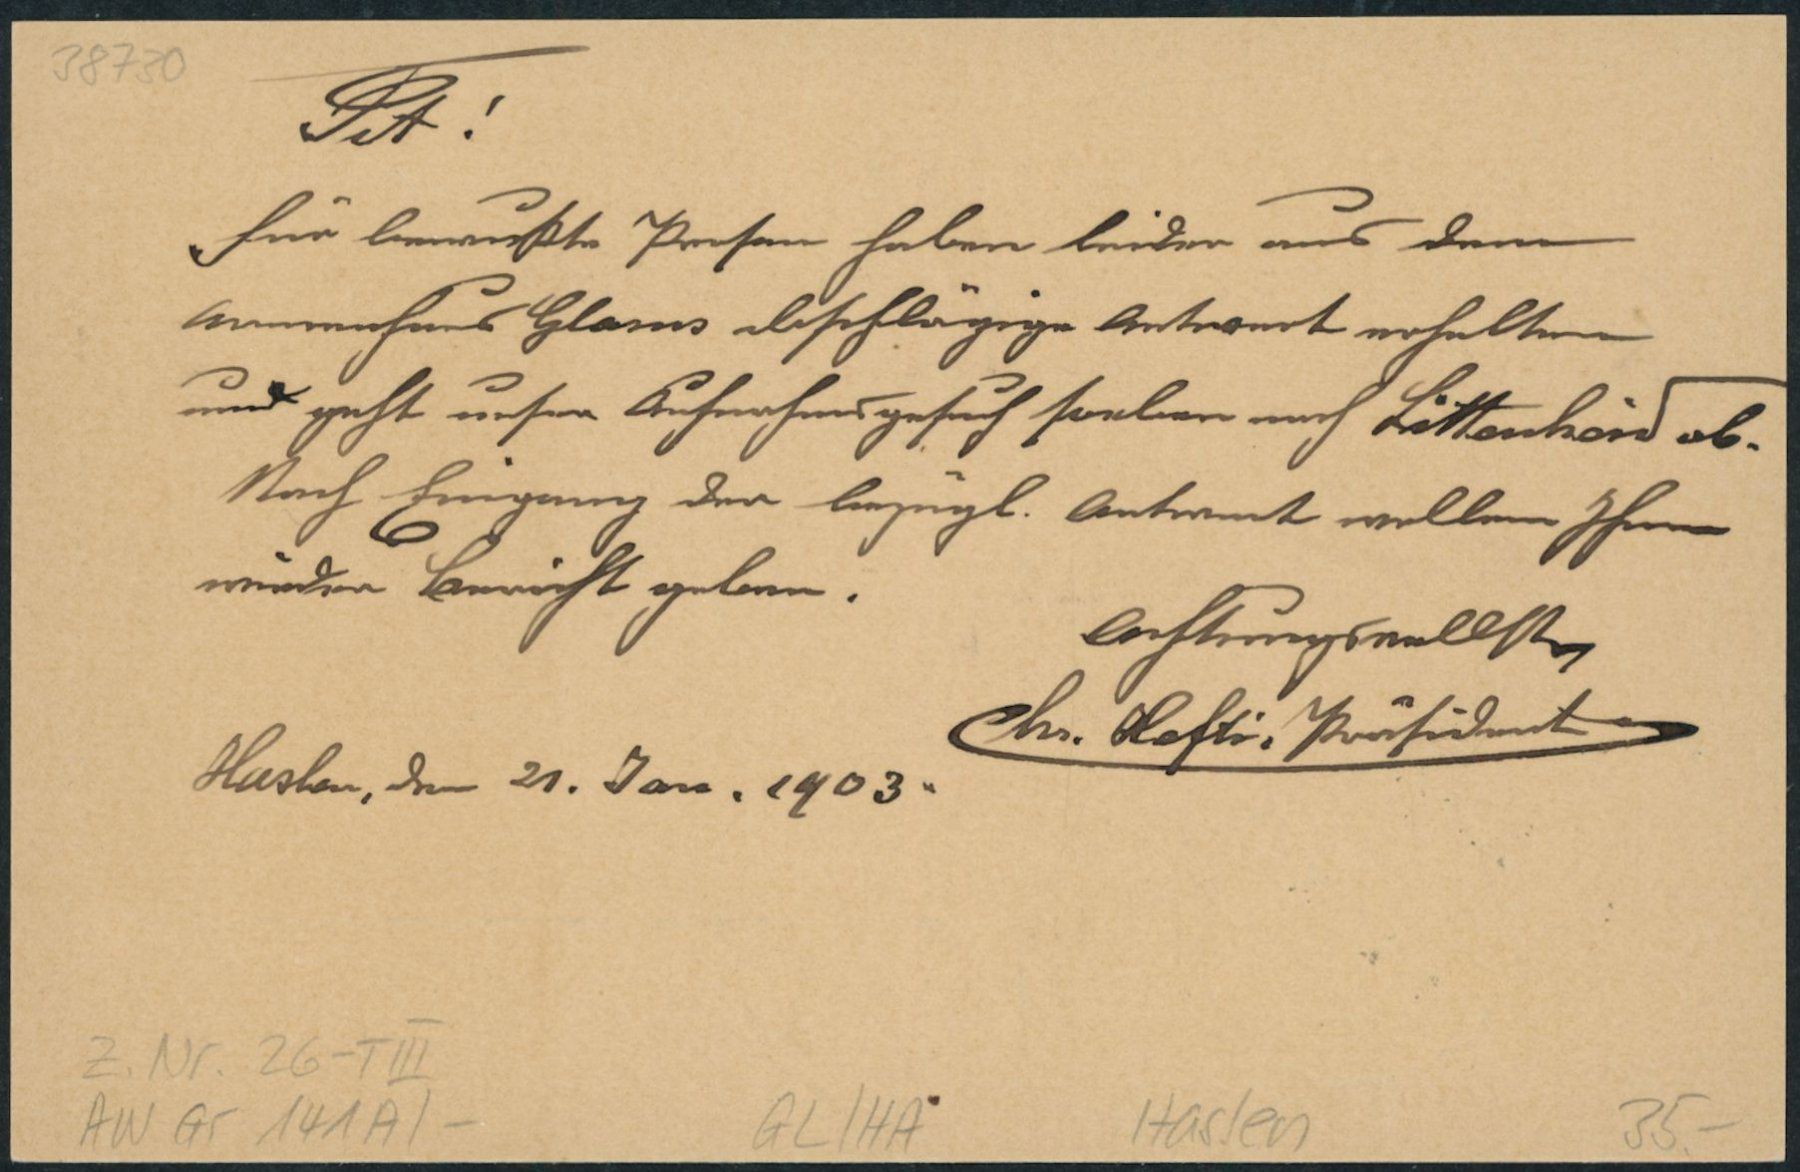 38730
Tit!
Für bewußte Person haben leider aus dem
Armenhaus Glarus abschlägige Antwort erhalten
und geht unser Aufnahmsgesuch soeben nach Littenheid ab.
Nach Eingang der bezügl. Antwort wollen Ihnen
wieder Bericht geben.
Achtungsvollst
Chr. Hefti, Präsident
Haslen, den 21. Jan. 1903.
Z. Nr. 26-TIII
AW Gr 141A/-
GL/HA
Haslen
35.-